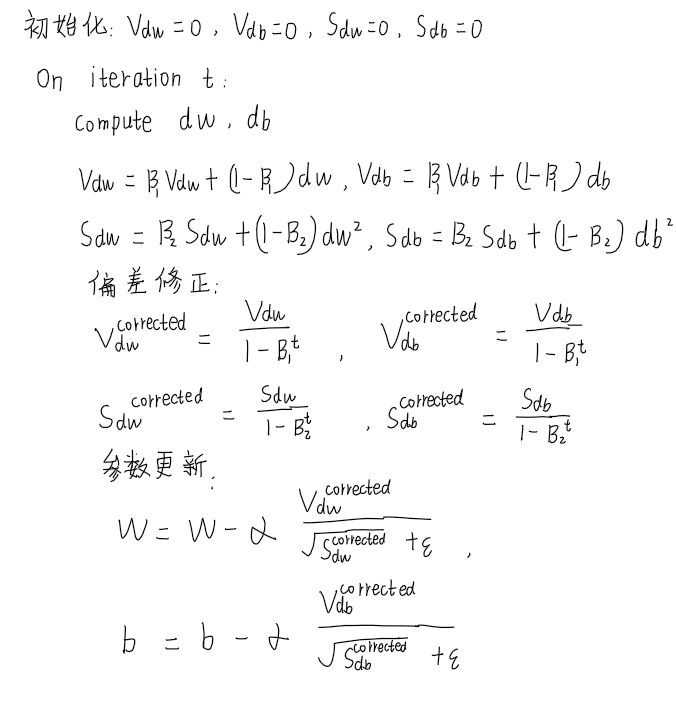 初始化: Vdw = 0, Vdb = 0, Sdw = 0, Sdb = 0
On iteration t:
compute dw, db
Vdw = β₁ Vdw + (1-β₁) dw, Vdb = β₁ Vdb + (1-β₁) db
Sdw = β₂ Sdw + (1-β₂) dw², Sdb = β₂ Sdb + (1-β₂) db²
偏差修正:
V_dw^corrected = Vdw / (1-β₁^t), V_db^corrected = Vdb / (1-β₁^t)
S_dw^corrected = Sdw / (1-β₂^t), S_db^corrected = Sdb / (1-β₂^t)
参数更新:
W = W - α V_dw^corrected / (√S_dw^corrected + ε),
b = b - α V_db^corrected / (√S_db^corrected + ε)